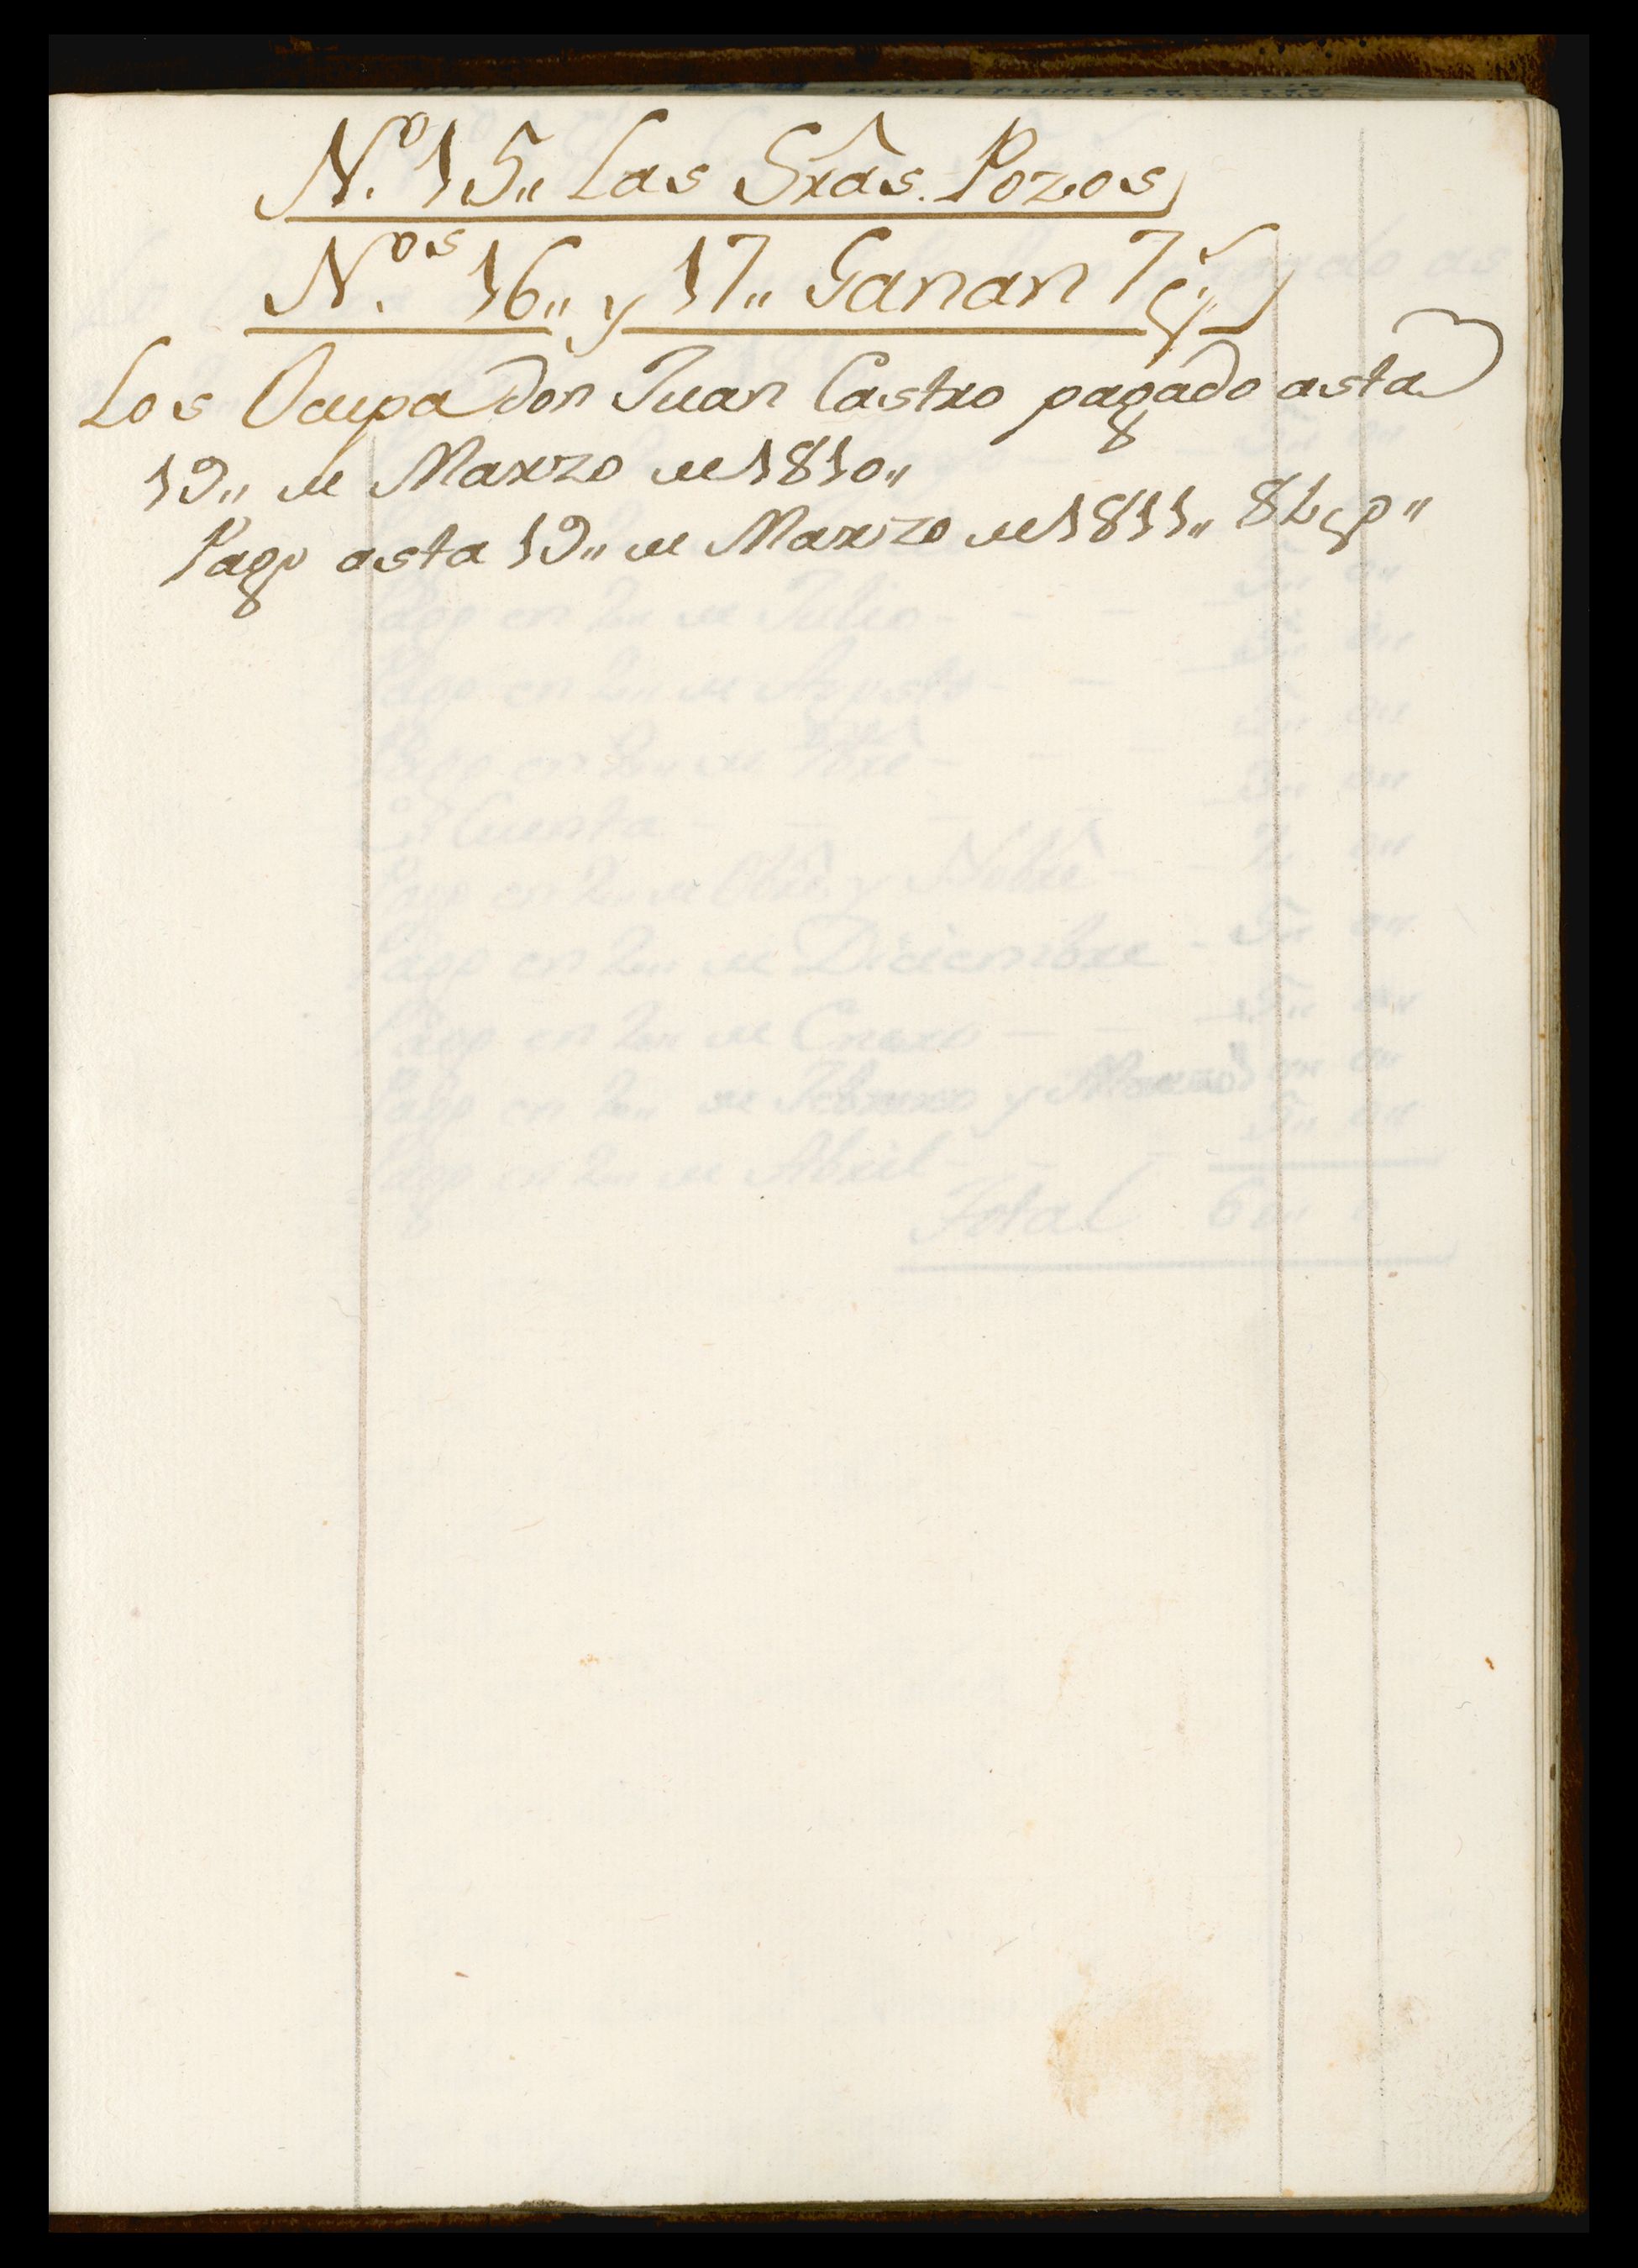 N.º 15,, Las Srâs. Pozos
N.ºˢ 16,, y 17,, Ganan 7
Los Ocupa don Juan Castro pagado asta
19,, de Marzo de 1810,,
Pago asta 19,, de Marzo de 1811,, 84 p,,